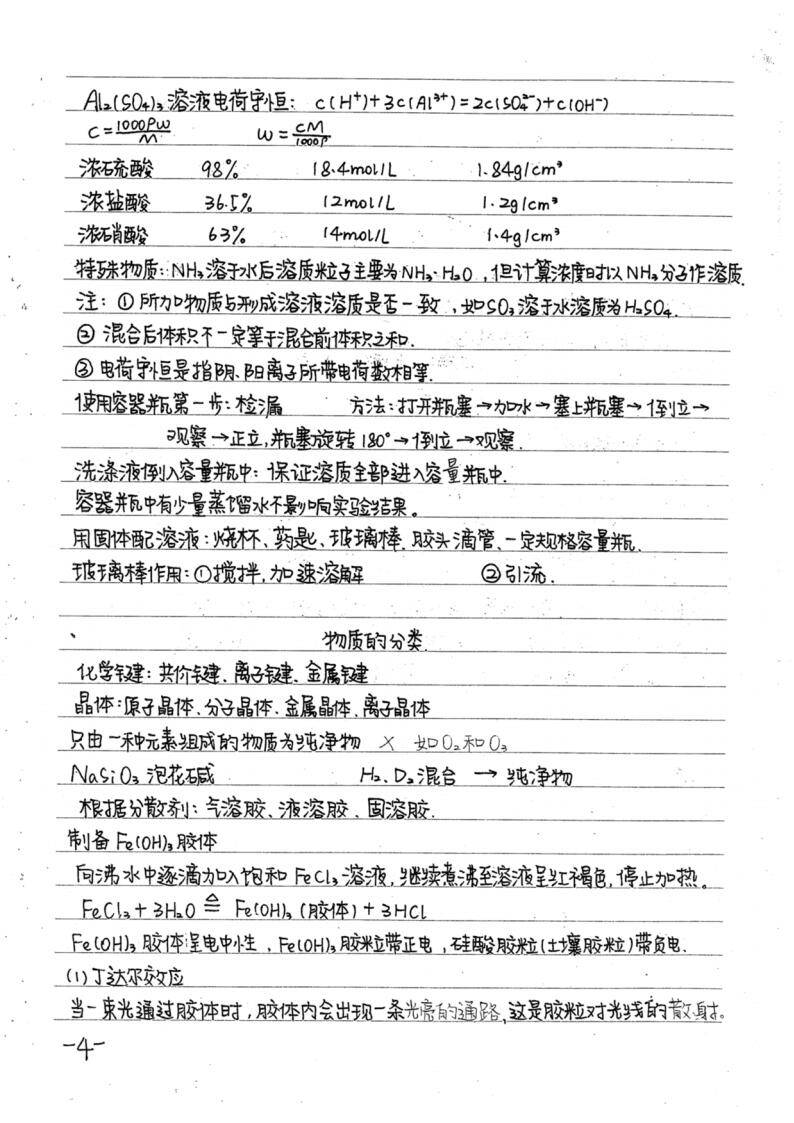 Al₂(SO₄)₃溶液电荷守恒: c(H⁺)+3c(Al³⁺)=2c(SO₄²⁻)+c(OH⁻)
C=1000PW/M W=CM/1000P
浓硫酸 98% 18.4mol/L 1.84g/cm³
浓盐酸 36.5% 12mol/L 1.2g/cm³
浓硝酸 63% 14mol/L 1.4g/cm³
特殊物质:NH₃溶于水后溶质粒子主要为NH₃·H₂O,但计算浓度时以NH₃分子作溶质.
注:①所加物质与形成溶液溶质是否一致,如SO₃溶于水溶质为H₂SO₄.
②混合后体积不一定等于混合前体积之和.
③电荷守恒是指阴、阳离子所带电荷数相等.
使用容器瓶第一步:检漏 方法:打开瓶塞→加水→塞上瓶塞→倒立→
观察→正立,瓶塞旋转180°→倒立→观察.
洗涤液倒入容量瓶中:保证溶质全部进入容量瓶中.
容器瓶中有少量蒸馏水不影响实验结果。
用固体配溶液:烧杯、药匙、玻璃棒、胶头滴管、一定规格容量瓶.
玻璃棒作用:①搅拌,加速溶解 ②引流.
物质的分类.
化学键:共价键、离子键、金属键
晶体:原子晶体、分子晶体、金属晶体、离子晶体
只由一种元素组成的物质为纯净物 × 如O₂和O₃
NaSiO₃泡花碱 H₂、D₂混合→纯净物
根据分散剂:气溶胶、液溶胶、固溶胶.
制备Fe(OH)₃胶体
向沸水中逐滴加入饱和FeCl₃溶液,继续煮沸至溶液呈红褐色,停止加热。
FeCl₃+3H₂O ≜ Fe(OH)₃(胶体)+3HCl
Fe(OH)₃胶体呈电中性,Fe(OH)₃胶粒带正电,硅酸胶粒(土壤胶粒)带负电.
(1)丁达尔效应
当一束光通过胶体时,胶体内会出现一条光亮的通路,这是胶粒对光线的散射。
-4-